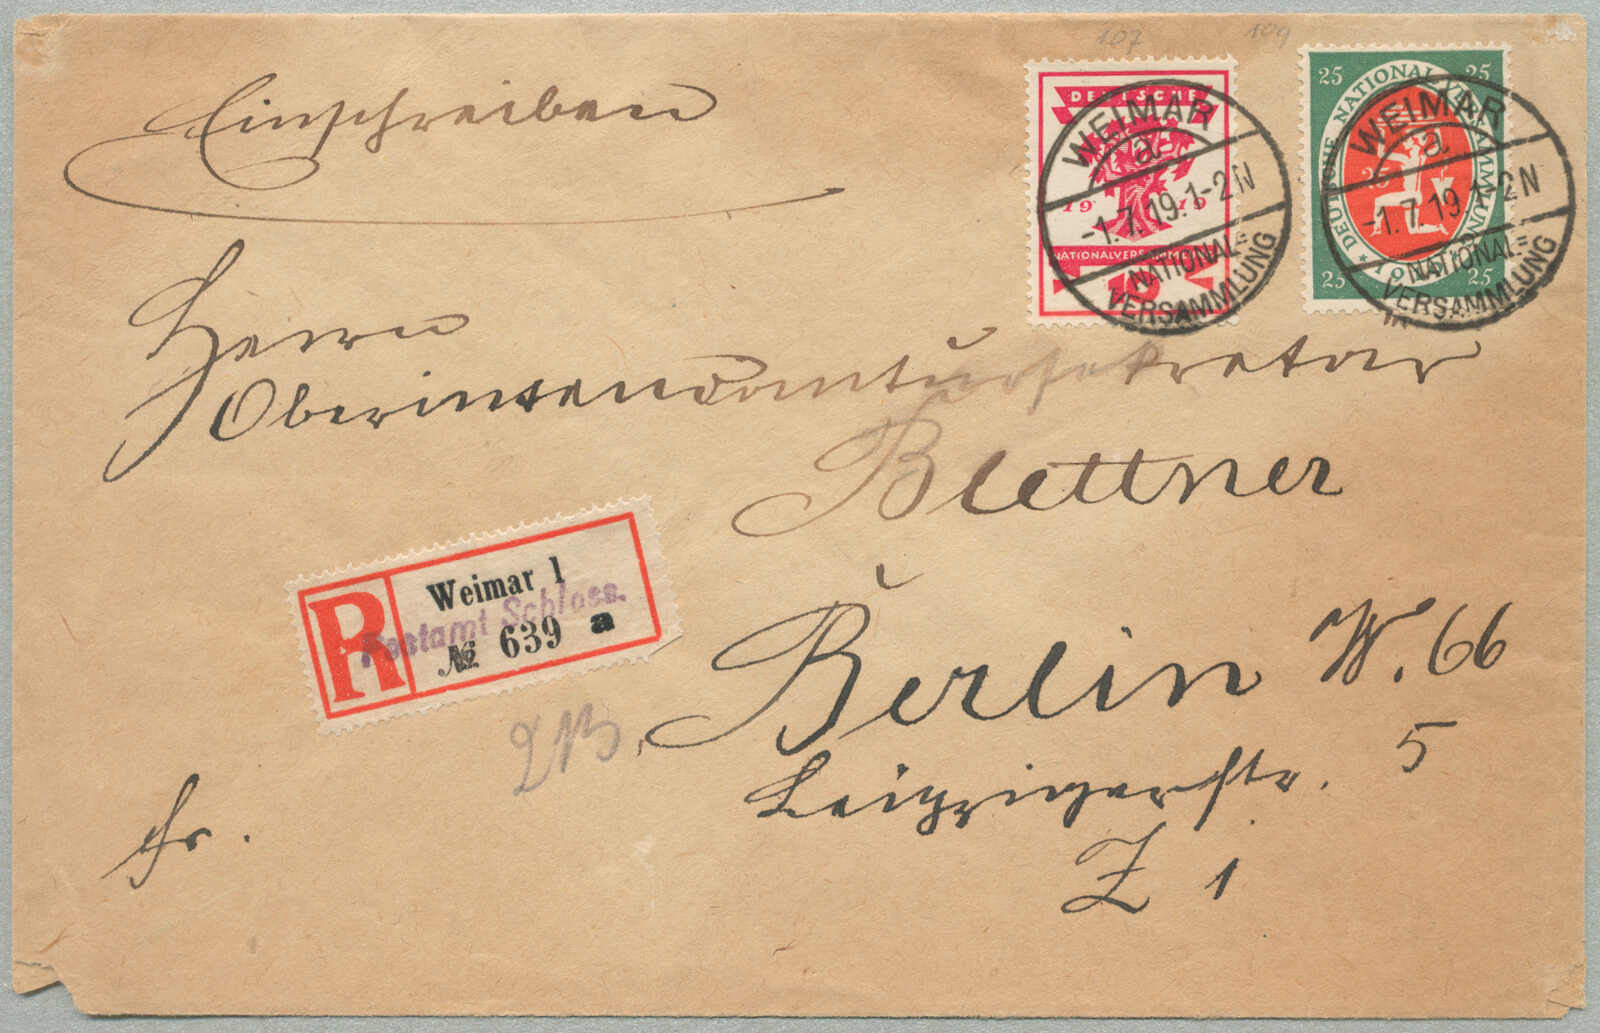 107 109
Einschreiben
DEUTSCHE
1919
NATIONALVERSAMMLUNG
10
25 25
DEUTSCHE NATIONALVERSAMMLUNG 1919
25
25 25
WEIMAR
a
-1.7.19.1-2N
NATIONAL=
VERSAMMLUNG
WEIMAR
a
-1.7.19.1-2N
NATIONAL=
VERSAMMLUNG
Herrn
Oberintendantursekretär
Blettner
R
Weimar 1
Postamt Schloss.
№ 639 a
Berlin W. 66
Leipzigerstr. 5
Z 1
fr.